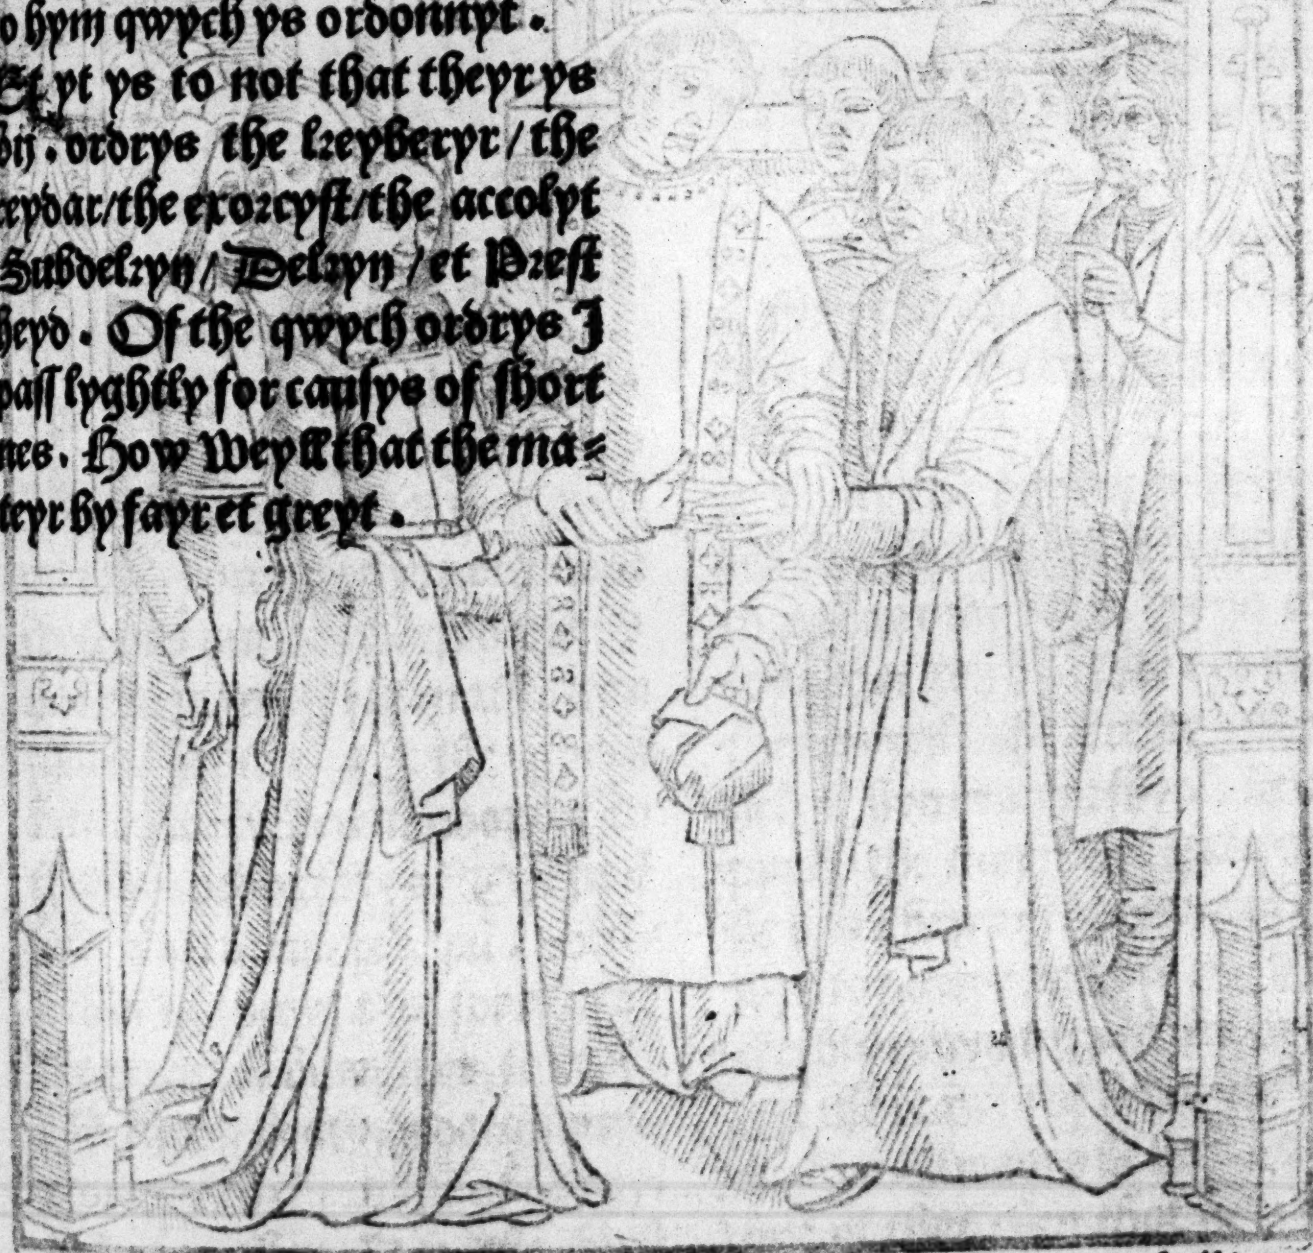 o hym qwych ys ordonnyt .
Et yt ys to not that theyr ys
vij . ordrys the kzeyberyr / the
reydar / the exorcyst / the accolyt
Subdekyn / Dekyn / et Prest
heyd . Of the qwych ordrys I
pass lyghtly for causys of short
nes . How weyll that the ma=
teyr by fayr et greyt .